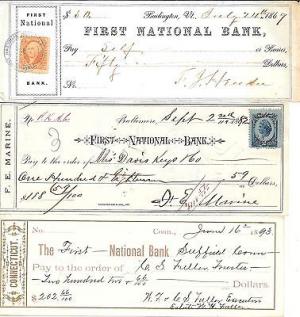 FIRST
National
BANK.
$50. Burlington, Vt. July 1867
FIRST NATIONAL BANK,
Pay Self or Bearer,
Fifty Dollars,
F. E. MARINE.
Baltimore, Sept 22nd 1882
FIRST NATIONAL BANK.
Pay to the order of Davis Keys & Co
One Hundred & Eighteen 59 Dollars,
$118 59/100 F. E. Marine
CONNECTICUT.
No. Conn., June 16th 1893
The First National Bank Suffield Conn
Pay to the order of C. S. Fuller Trustee
Two hundred two & 66/100
Dollars.
$202 66/100 W. F. & C. S. Fuller Executors